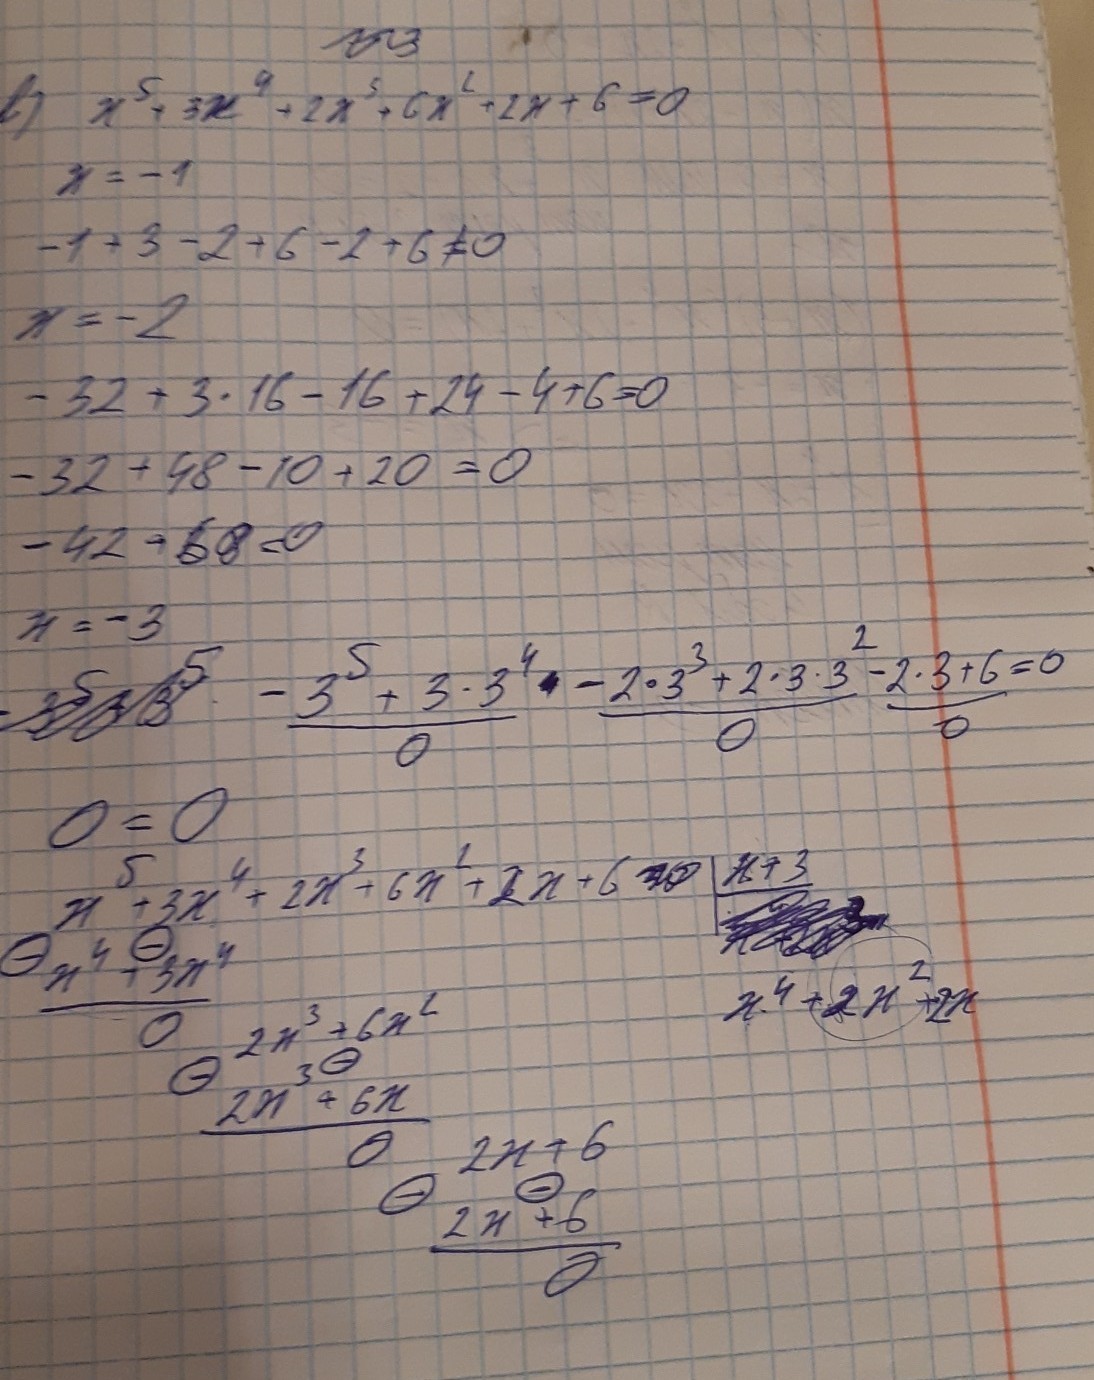 №3
в) x⁵ + 3x⁴ + 2x³ + 6x² + 2x + 6 = 0
x = -1
-1 + 3 - 2 + 6 - 2 + 6 ≠ 0
x = -2
-32 + 3·16 - 16 + 24 - 4 + 6 = 0
-32 + 48 - 10 + 20 = 0
-42 + 68 = 0
x = -3
-3⁵ + 3·3⁴ - 2·3³ + 2·3·3² - 2·3 + 6 = 0
0 0 0
0 = 0
x⁵ + 3x⁴ + 2x³ + 6x² + 2x + 6 x + 3
⊖ x⁴ ⊖ + 3x⁴
x⁴ + 2x² + 2x
0 2x³ + 6x²
⊖ 2x³ ⊖ + 6x
0 2x + 6
⊖ 2x ⊖ + 6
0